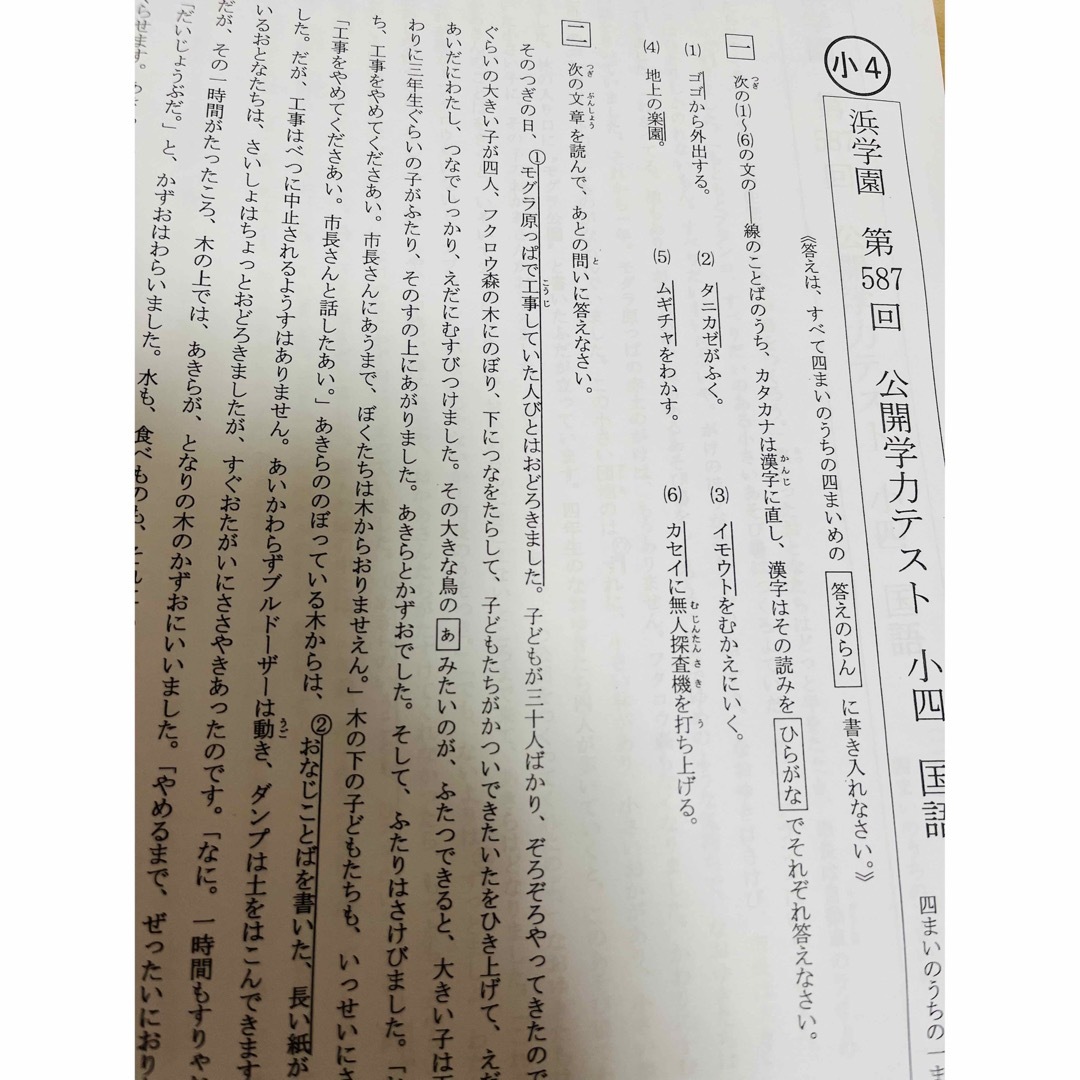 小4
浜学園　第587回　公開学力テスト　小四　国語
四まいのうちの一ま
《答えは、すべて四まいのうちの四まいめの 答えのらん に書き入れなさい。》
一 次の⑴～⑹の文の――線のことばのうち、カタカナは漢字に直し、漢字はその読みを ひらがな でそれぞれ答えなさい。
⑴ ゴゴから外出する。　⑵ タニカゼがふく。　⑶ イモウトをむかえにいく。
⑷ 地上の楽園。　⑸ ムギチャをわかす。　⑹ カセイに無人探査機を打ち上げる。
二 次の文章を読んで、あとの問いに答えなさい。
そのつぎの日、①モグラ原っぱで工事していた人びとはおどろきました。子どもが三十人ばかり、ぞろぞろやってきたので
ぐらいの大きい子が四人、フクロウ森の木にのぼり、下につなをたらして、子どもたちがかついできたいたをひき上げて、えだ
あいだにわたし、つなでしっかり、えだにむすびつけました。その大きな鳥の ぁ みたいのが、ふたつできると、大きい子は
わりに三年生ぐらいの子がふたり、そのすの上にあがりました。あきらとかずおでした。そして、ふたりはさけびました。
ち、工事をやめてくださあい。市長さんにあうまで、ぼくたちは木からおりませえん。」木の下の子どもたちも、いっせいにさ
「工事をやめてくださあい。市長さんと話したあい。」あきらののぼっている木からは、②おなじことばを書いた、長い紙が
した。だが、工事はべつに中止されるようすはありません。あいかわらずブルドーザーは動き、ダンプは土をはこんできます
いるおとなたちは、さいしょはちょっとおどろきましたが、すぐおたがいにささやきあったのです。「なに。一時間もすりゃ
だが、その一時間がたったころ、木の上では、あきらが、となりの木のかずおにいいました。「やめるまで、ぜったいにおり
「だいじょうぶだ。」と、かずおはわらいました。水も、食べものも、
らせます。